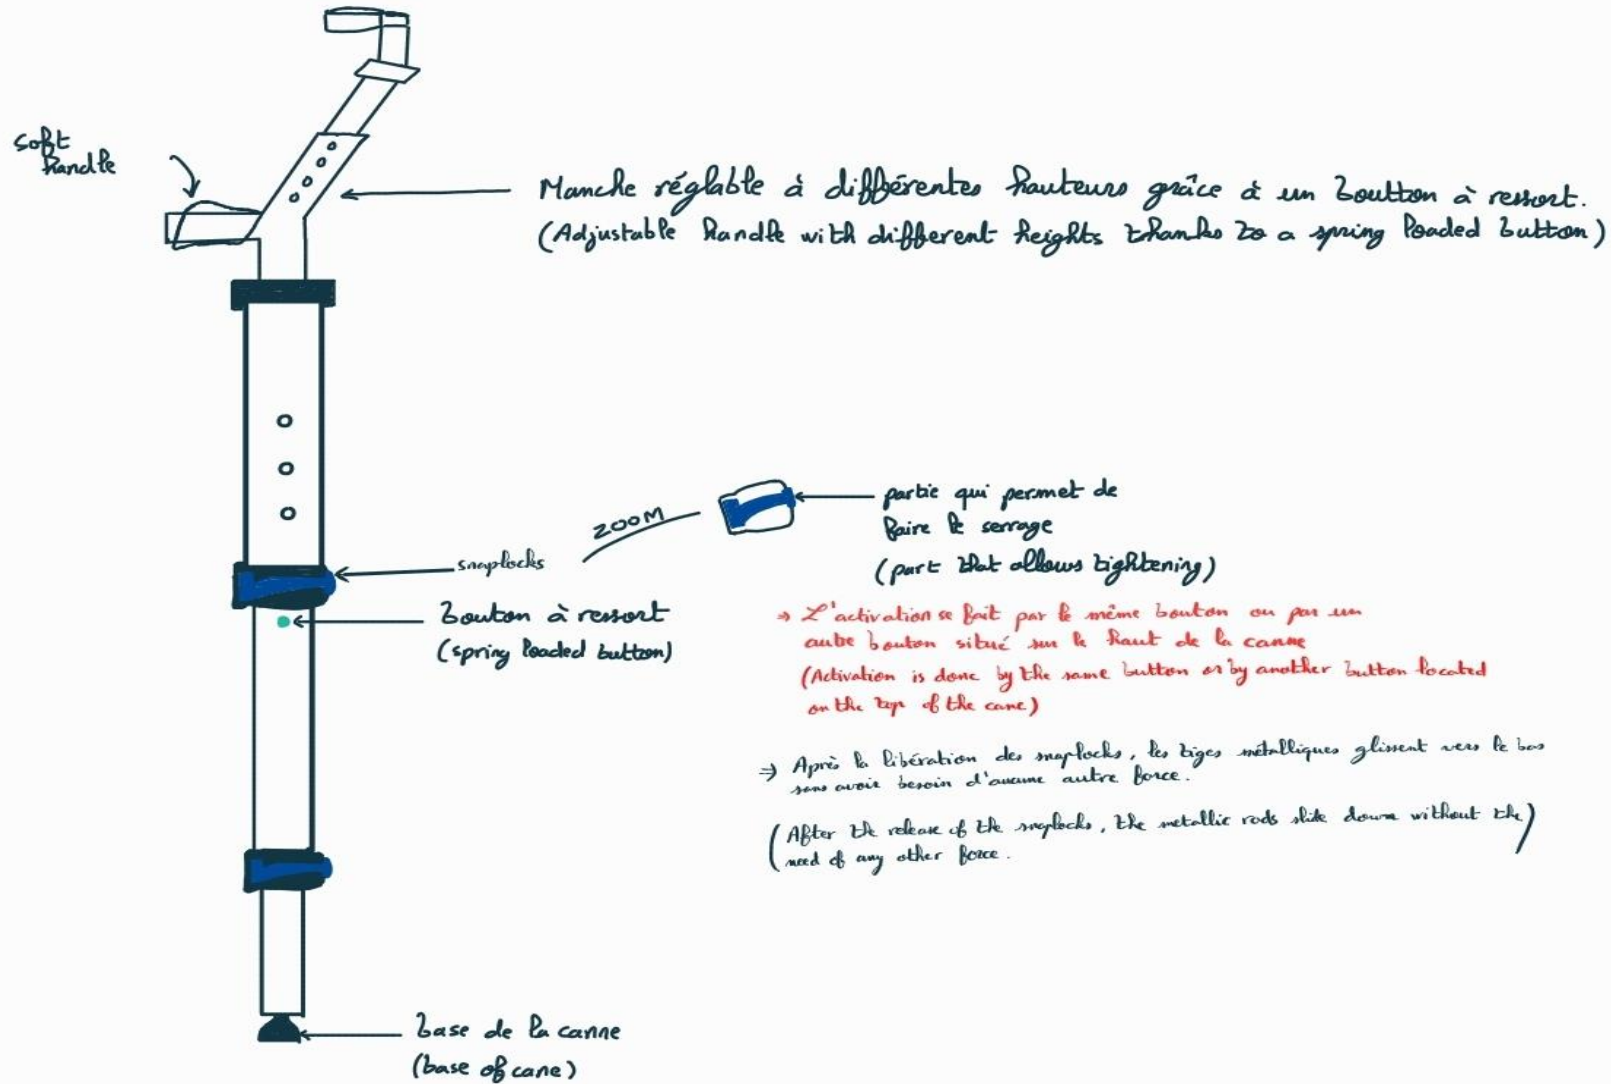 soft
handle
Manche réglable à différentes hauteurs grâce à un boutton à ressort.
(Adjustable handle with different heights thanks to a spring loaded button)
ZOOM
partie qui permet de
faire le serrage
(part that allows tightening)
snaplocks
bouton à ressort
(spring loaded button)
→ L'activation se fait par le même bouton ou par un
autre bouton situé sur le haut de la canne
(Activation is done by the same button or by another button located
on the top of the cane)
⇒ Après la libération des snaplocks, les tiges métalliques glissent vers le bas
sans avoir besoin d'aucune autre force.
(After the release of the snaplocks, the metallic rods slide down without the
need of any other force.)
base de la canne
(base of cane)